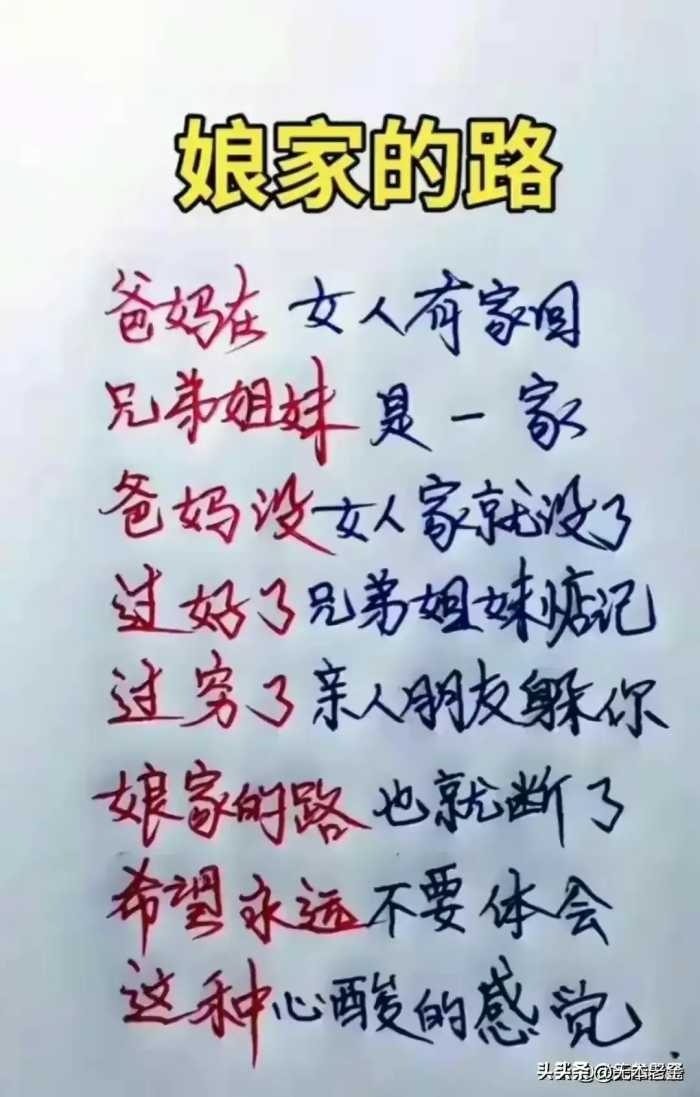 娘家的路
爸妈在 女人有家回
兄弟姐妹 是一家
爸妈没女人家就没了
过好了兄弟姐妹惦记
过穷了亲人朋友躲你
娘家的路也就断了
希望永远不要体会
这种心酸的感觉.
头条@